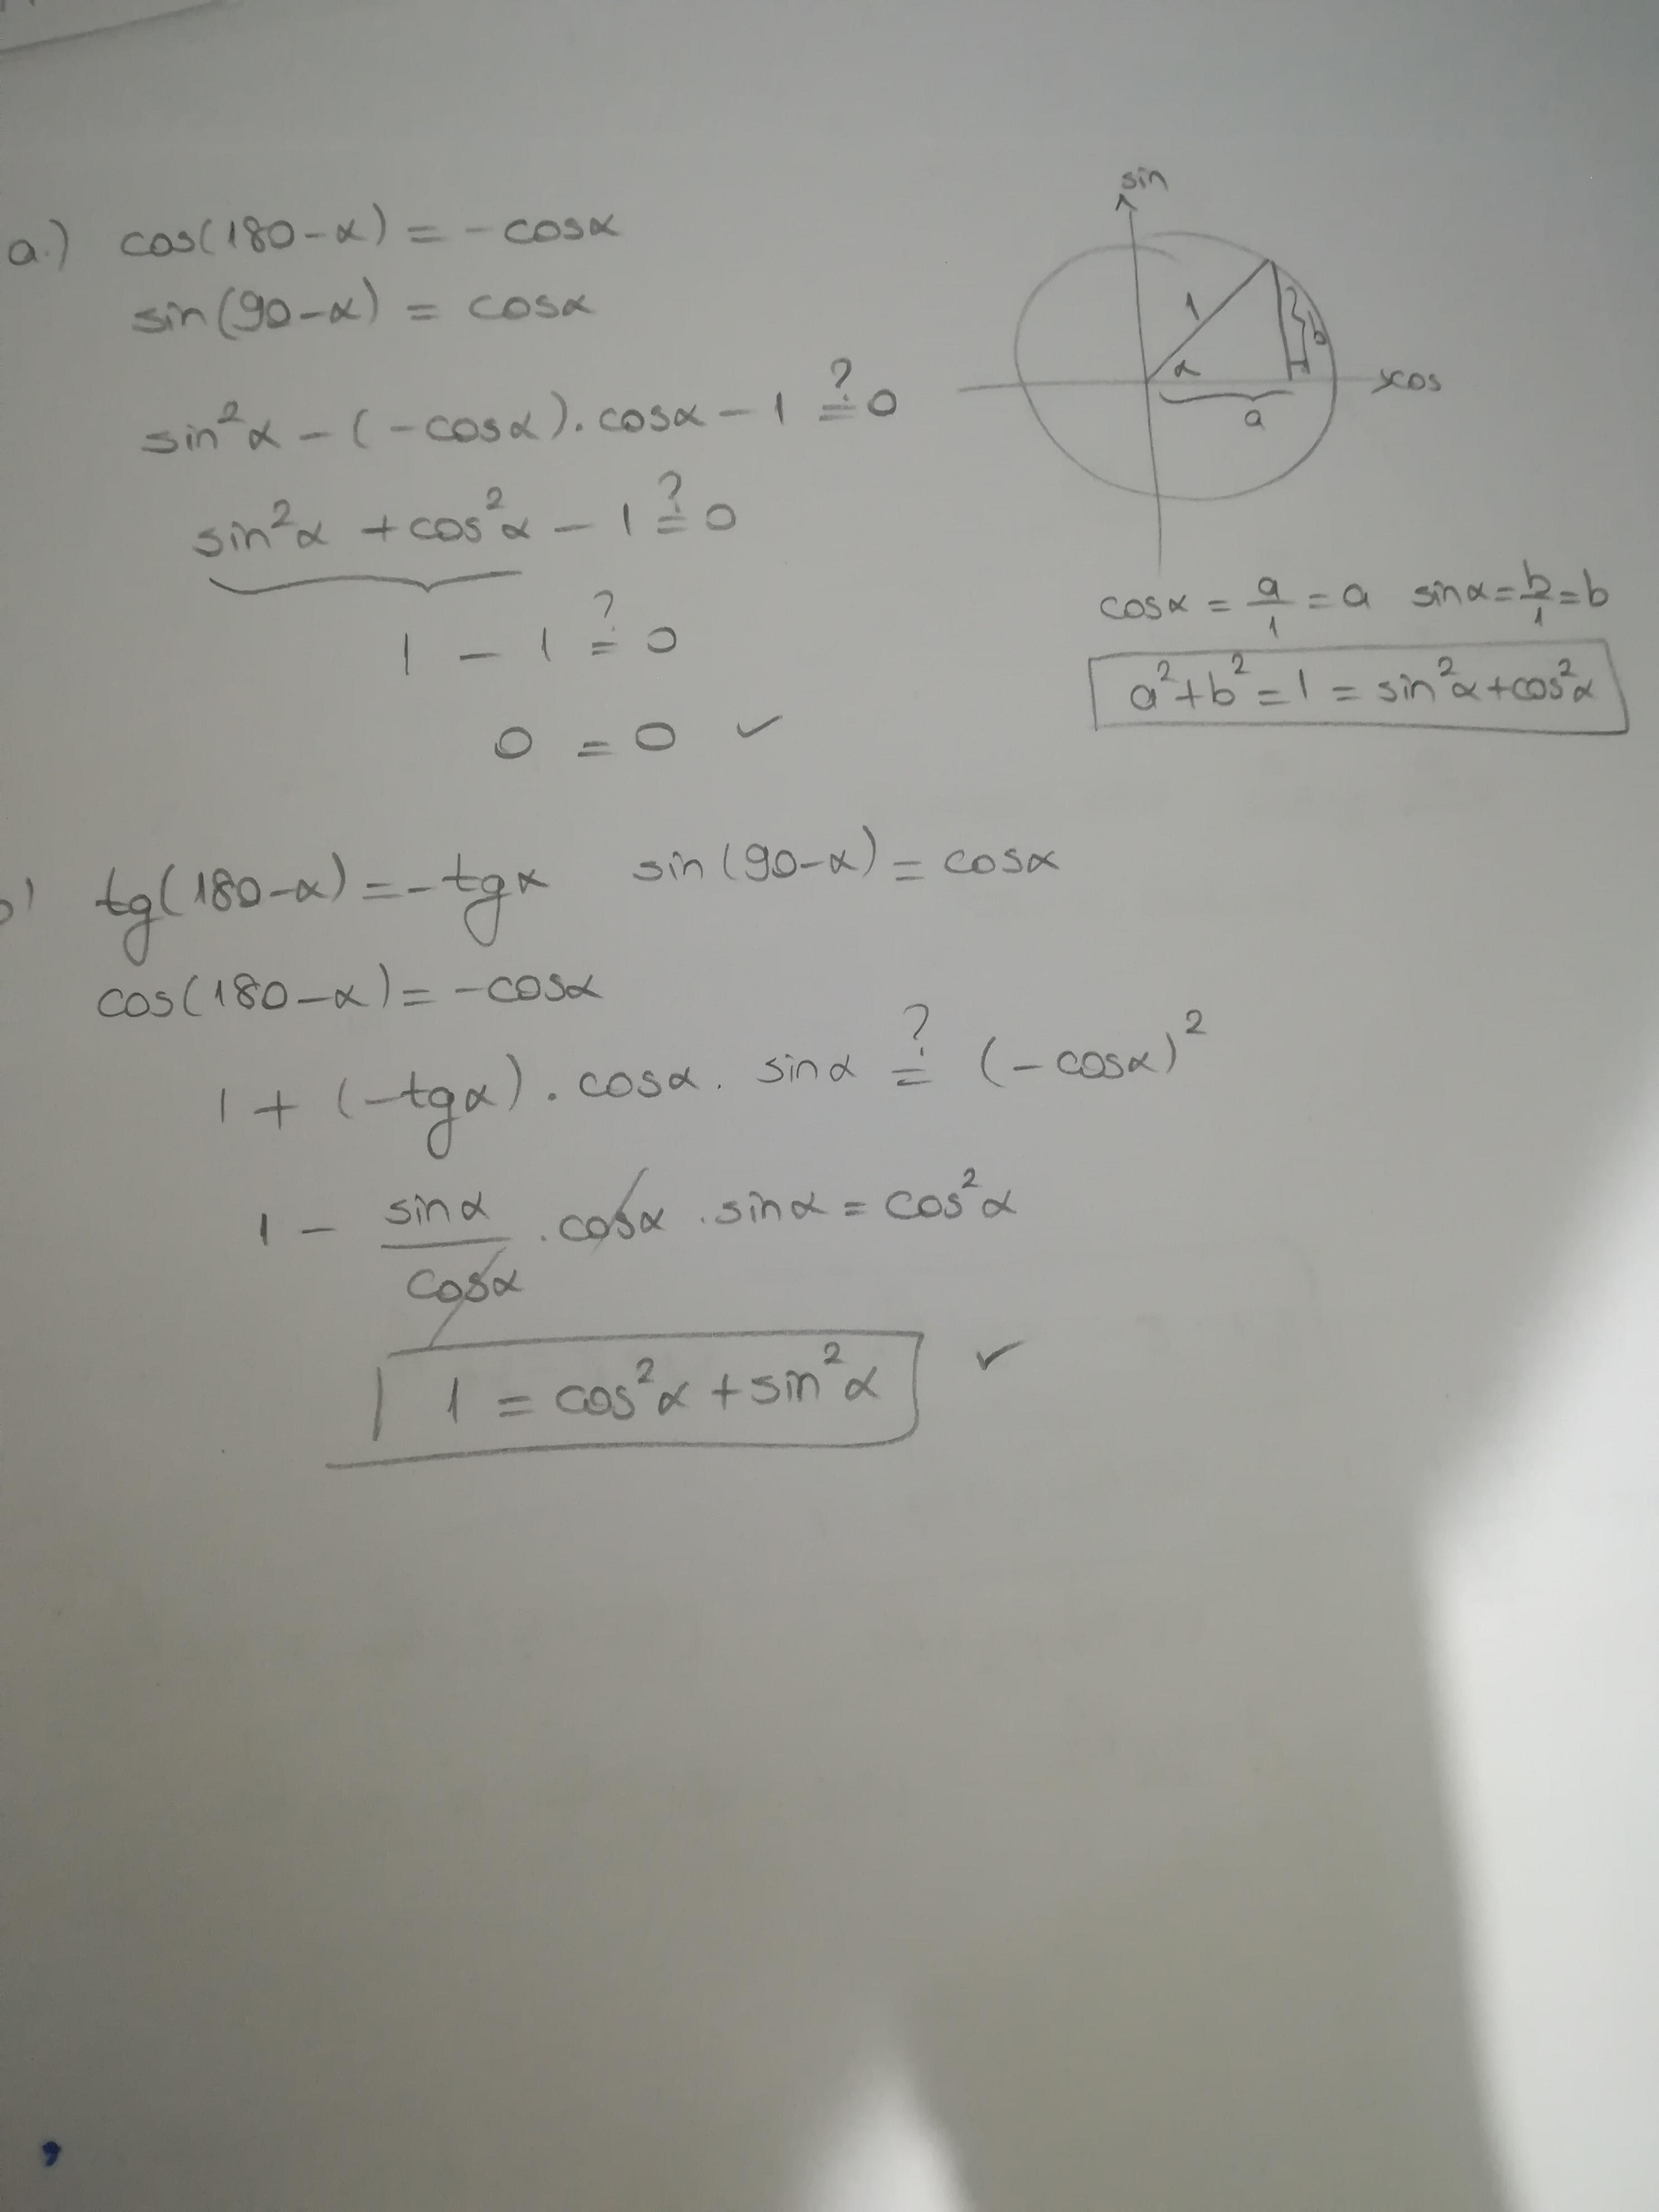 a.) cos(180-α) = -cosα
sin(90-α) = cosα
sin²α - (-cosα). cosα - 1 ?= 0
sin²α + cos²α - 1 ?= 0
1 - 1 ?= 0
0 = 0 ✓
sin
1
b
α
xcos
a
cosα = a/1 = a sinα = b/1 = b
a² + b² = 1 = sin²α + cos²α
b) tg(180-α) = -tgα sin(90-α) = cosα
cos(180-α) = -cosα
1 + (-tgα) . cosα . sinα ?= (-cosα)²
1 - sinα/cosα . cosα . sinα = cos²α
1 = cos²α + sin²α ✓